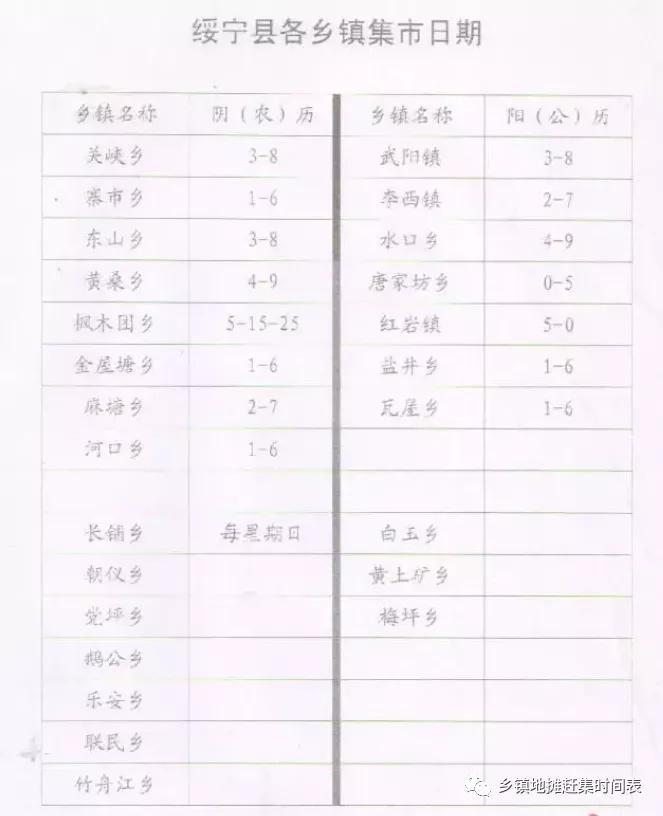 绥宁县各乡镇集市日期
乡镇名称 阴（农）历 乡镇名称 阳（公）历
关峡乡 3-8 武阳镇 3-8
寨市乡 1-6 李西镇 2-7
东山乡 3-8 水口乡 4-9
黄桑乡 4-9 唐家坊乡 0-5
枫木团乡 5-15-25 红岩镇 5-0
金屋塘乡 1-6 盐井乡 1-6
麻塘乡 2-7 瓦屋乡 1-6
河口乡 1-6
长铺乡 每星期日 白玉乡
朝仪乡 黄土矿乡
党坪乡 梅坪乡
鹅公乡
乐安乡
联民乡
竹舟江乡
乡镇地摊赶集时间表